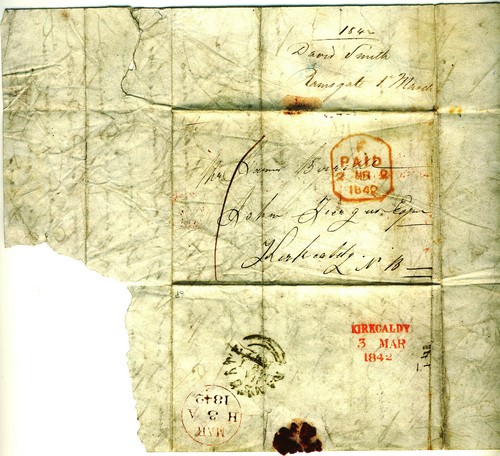 1842
David Smith
Ramsgate 1st March
PAID
2 MR 2
1842
John
Esqr
Kirkcaldy
N B
KIRKCALDY
3 MAR
1842
MAR
H 3 A
1842